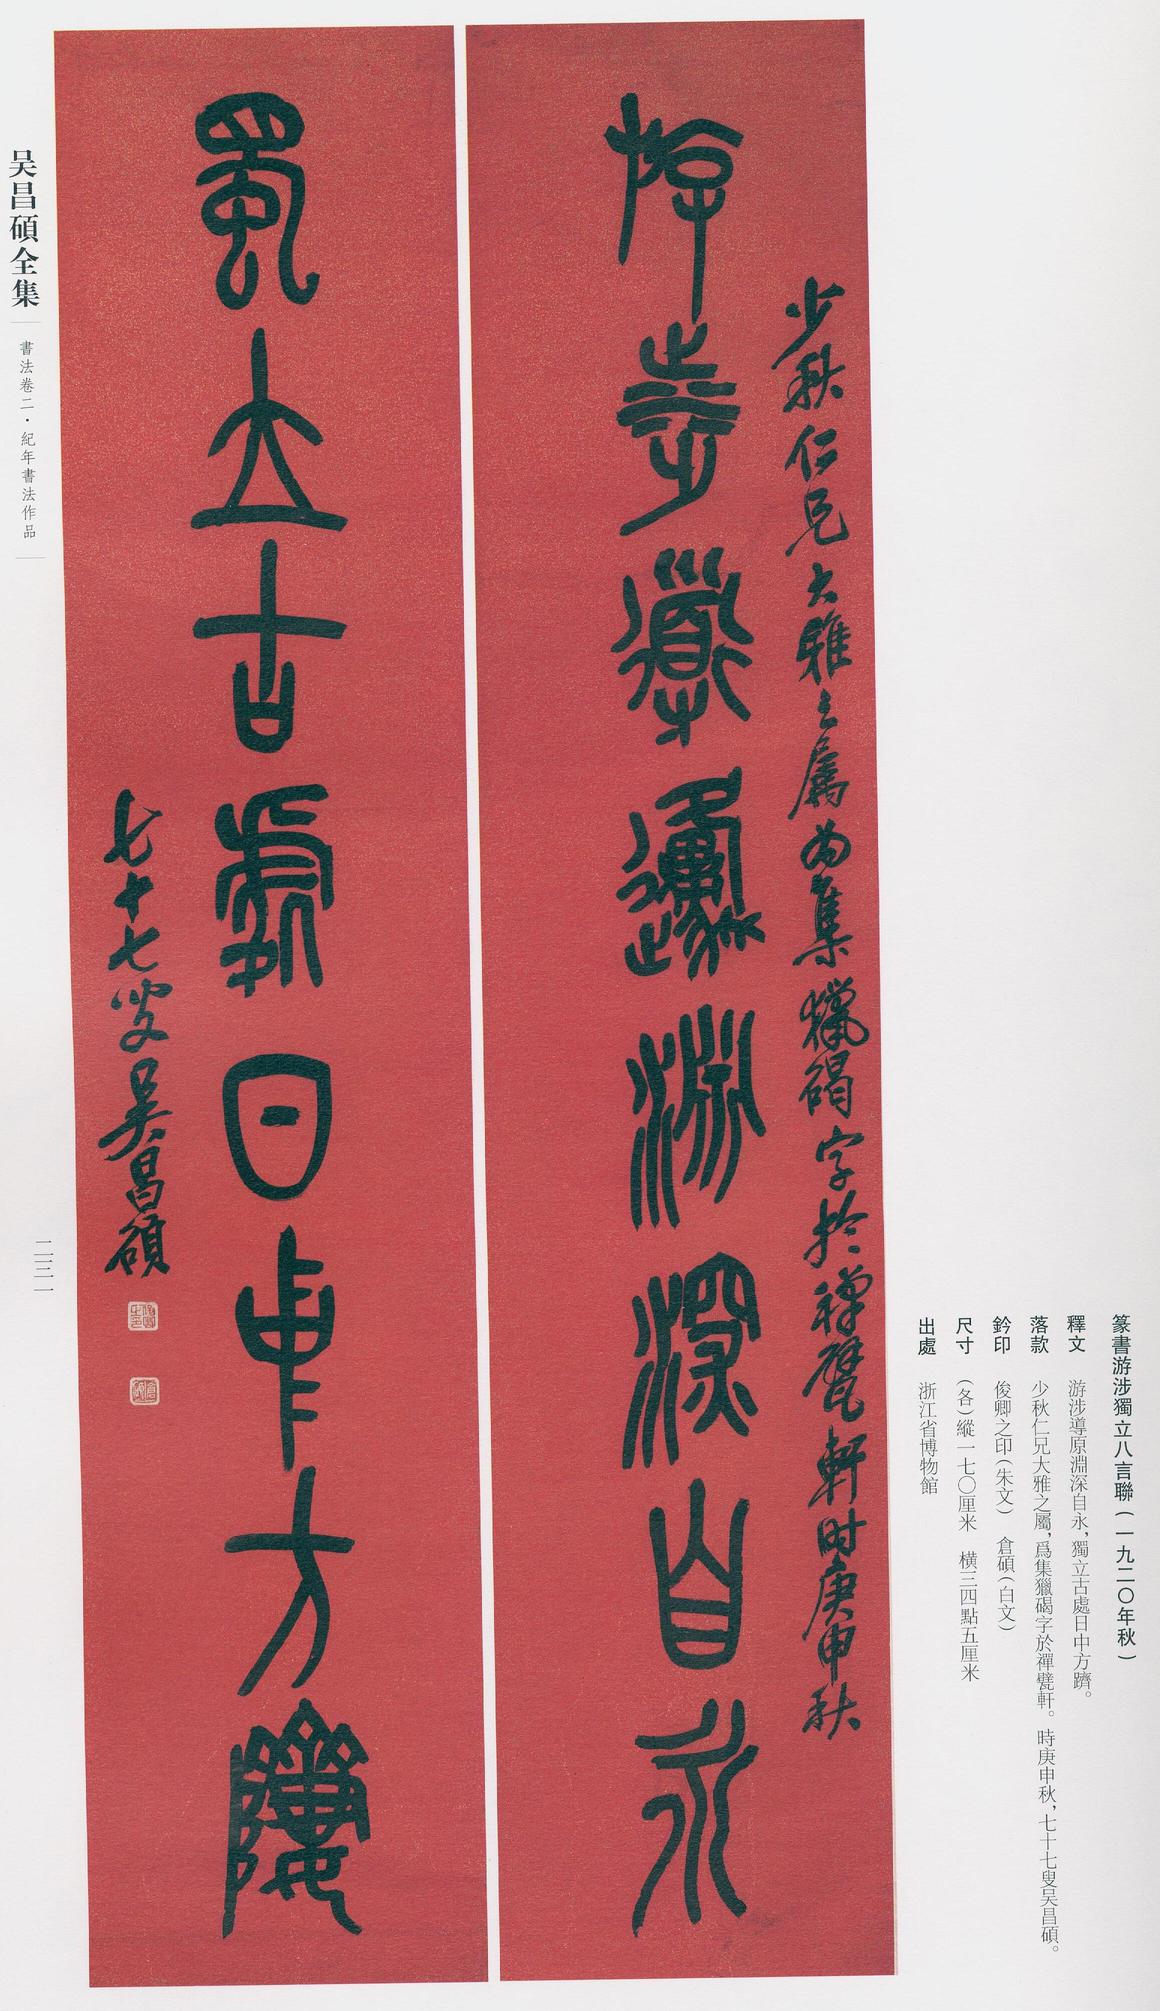 篆書游涉獨立八言聯(一九二〇年秋)
釋文 游涉導原淵深自永,獨立古處日中方躋。
落款 少秋仁兄大雅之屬,爲集獵碣字於禪甓軒。時庚申秋,七十七叟吴昌碩。
鈐印 俊卿之印(朱文) 倉碩(白文)
尺寸 (各)縱一七〇厘米 橫三四點五厘米
出處 浙江省博物館
少秋仁兄大雅之屬为集獵碣字於禪甓軒時庚申秋
游涉導原淵深自永
獨立古處日中方躋
七十七叟吴昌碩
俊卿之印
倉碩
吴昌碩全集
書法卷二·紀年書法作品
二三一